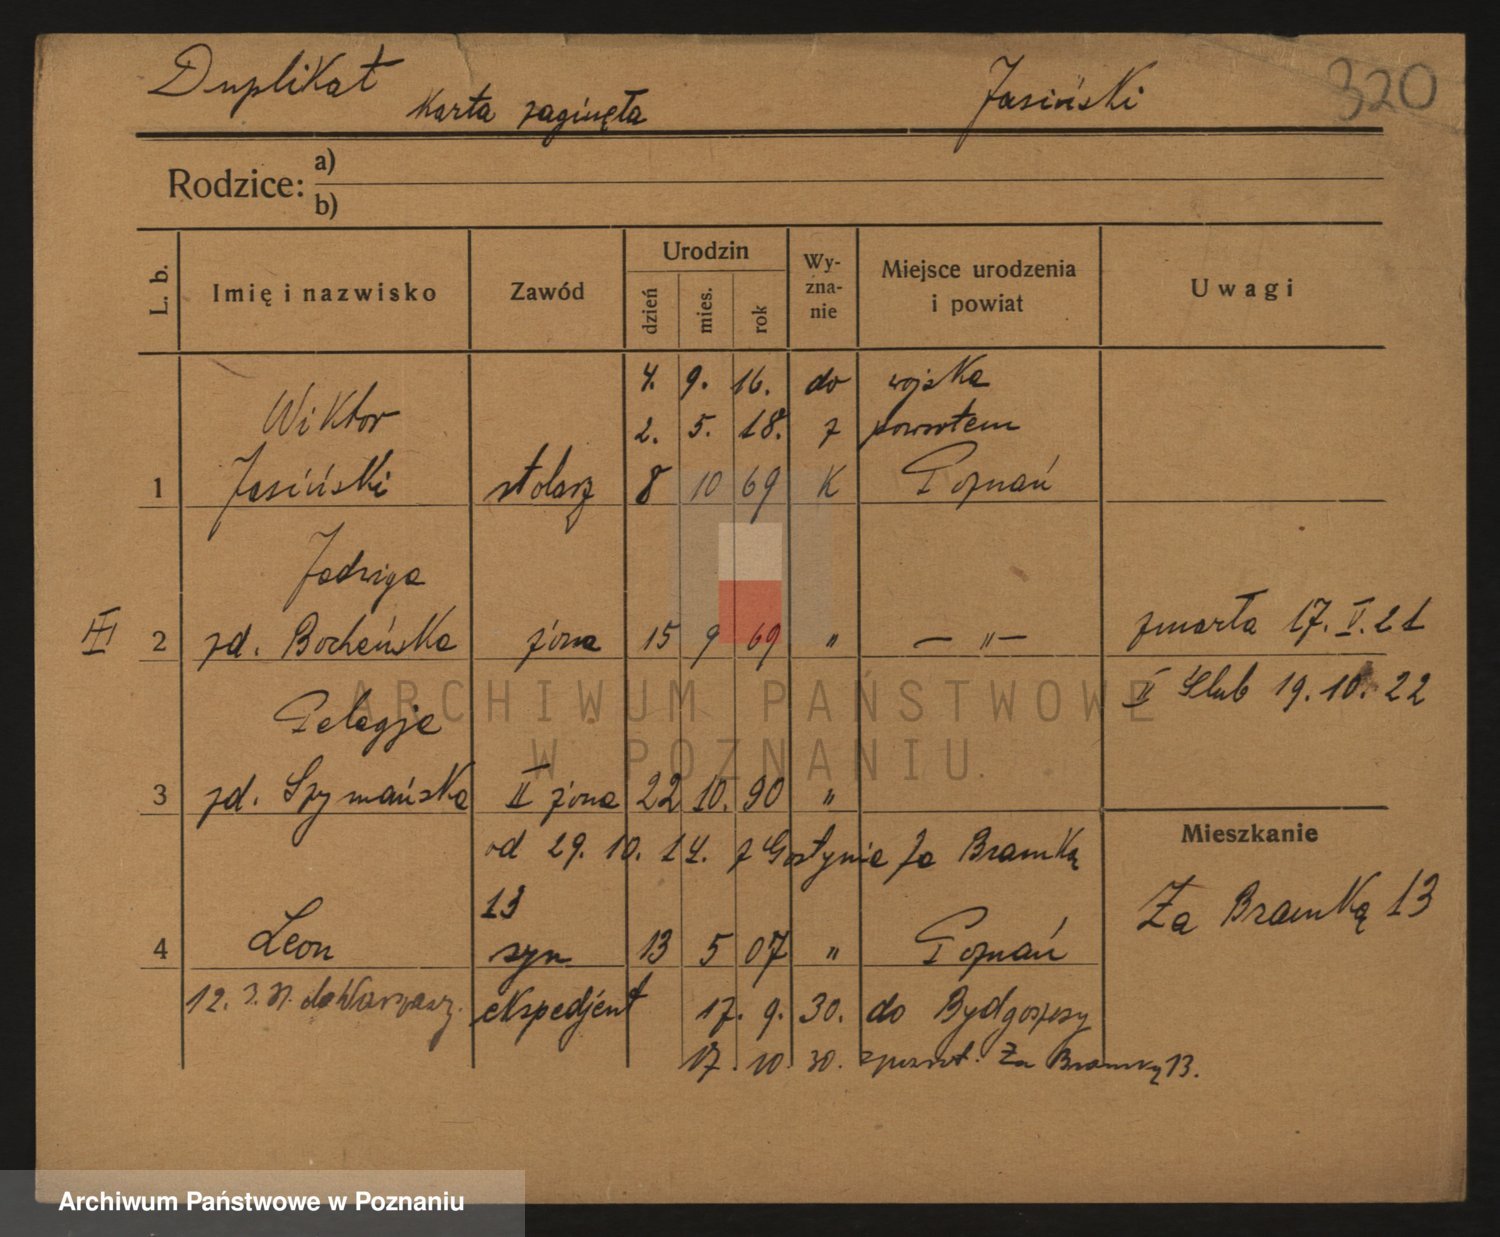 Duplikat
Karta zaginęła
Jasiński
320
Rodzice: a)
b)
L. b.
Imię i nazwisko
Zawód
Urodzin
dzień
mies.
rok
Wy-
zna-
nie
Miejsce urodzenia
i powiat
Uwagi
4. 9. 16. do wojska
Wiktor
2. 5. 18. z powrotem
1 Jasiński stolarz 8 10 69 K Poznań
Jadwiga
III 2 zd. Bocheńska żona 15 9 69 " — " — zmarła 17. V. 21
II Ślub 19. 10. 22
Pelagja
3 zd. Szymańska II żona 22 10. 90 "
Mieszkanie
od 29. 10. 14. z Gostynia Za Bramką
13
Za Bramką 13
4 Leon syn 13 5 07 " Poznań
12. 3. 31. do Warszawy.
ekspedjent 17. 9. 30. do Bydgoszczy
17. 10. 30. zpowrot. Za Bramką 13.
ARCHIWUM PAŃSTWOWE
W POZNANIU
Archiwum Państwowe w Poznaniu